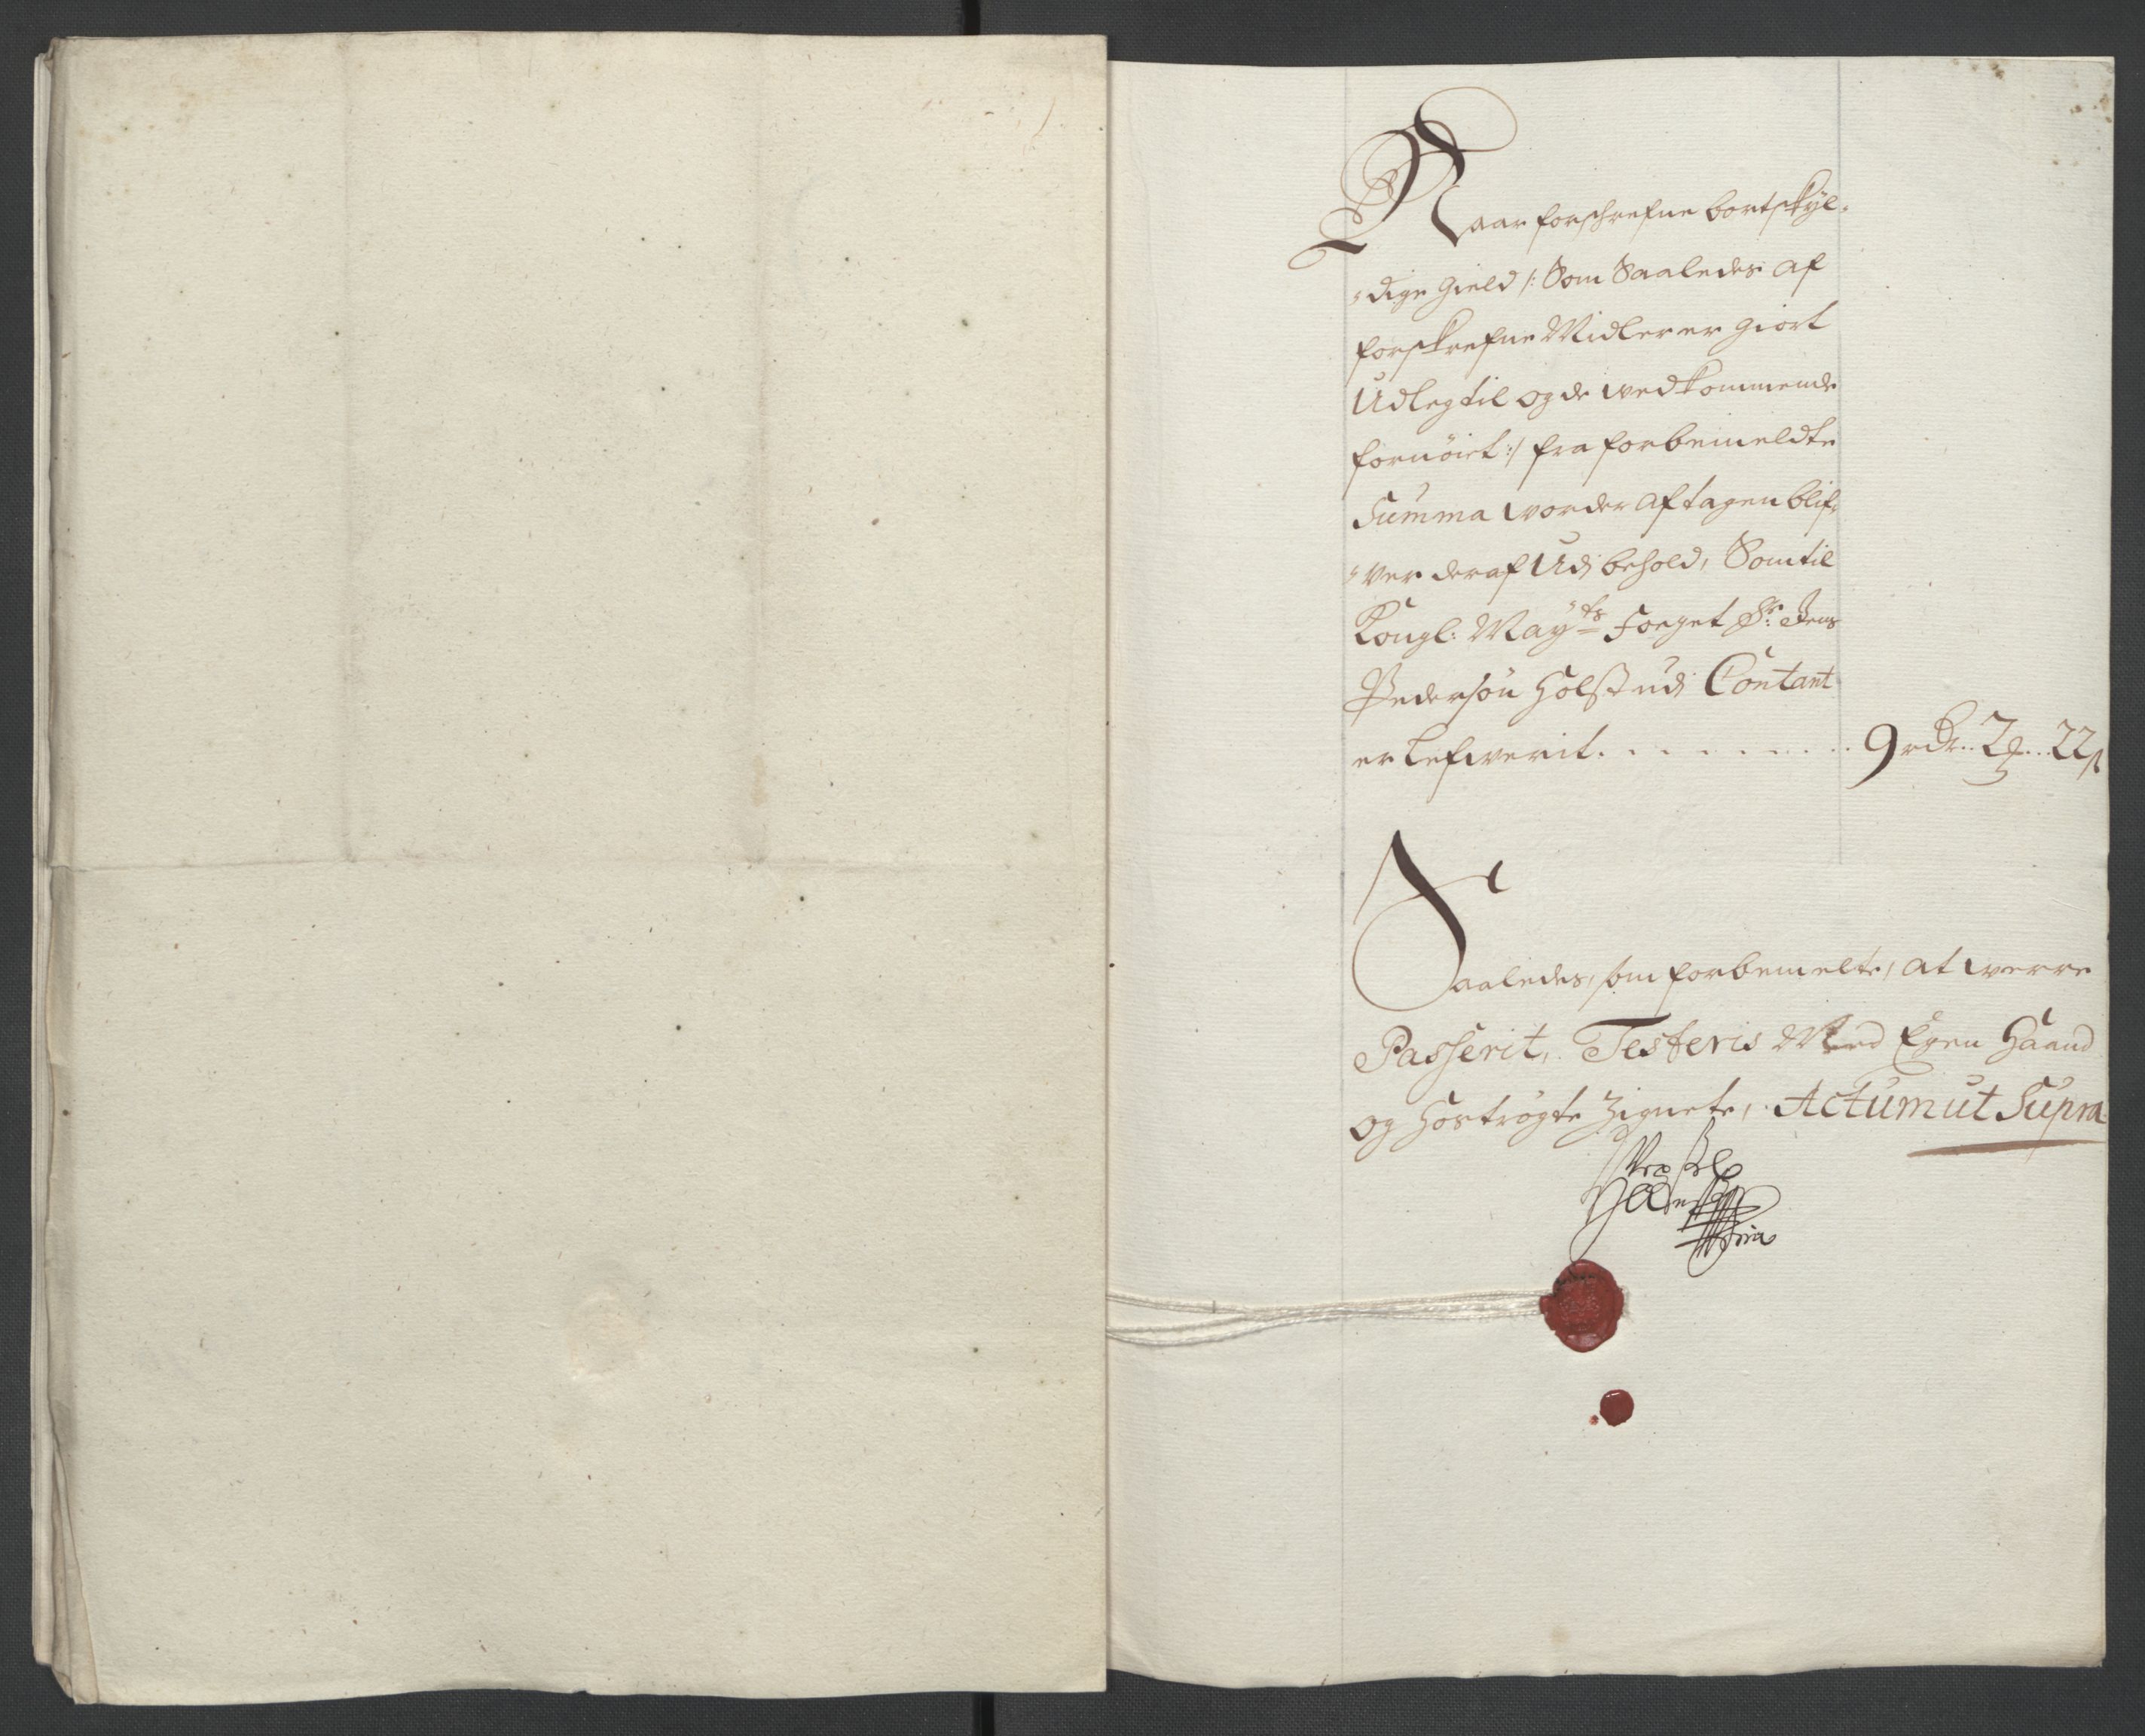 Naar forschrefne bortskÿl-
dige gield /: Som Saaledes af
forskrefne Midler er giort
Udleg til og de wedkommende
fornöiet :/ fra forbemeldte
Summa worder aftagen blif-
ver deraf Udj behold, Som til
Kongl: Maÿ.ts Foeget Sr: Jens
Pedersön Holst udj Contant
er Lefwerit. . . . . . . . . 9 rdr.. 2 ... 22 s
Saaledes, som forbemelte, at werre
Passerit, Testeris Med Egen Haand
og Hoströgte Zignete, Actum ut Supra